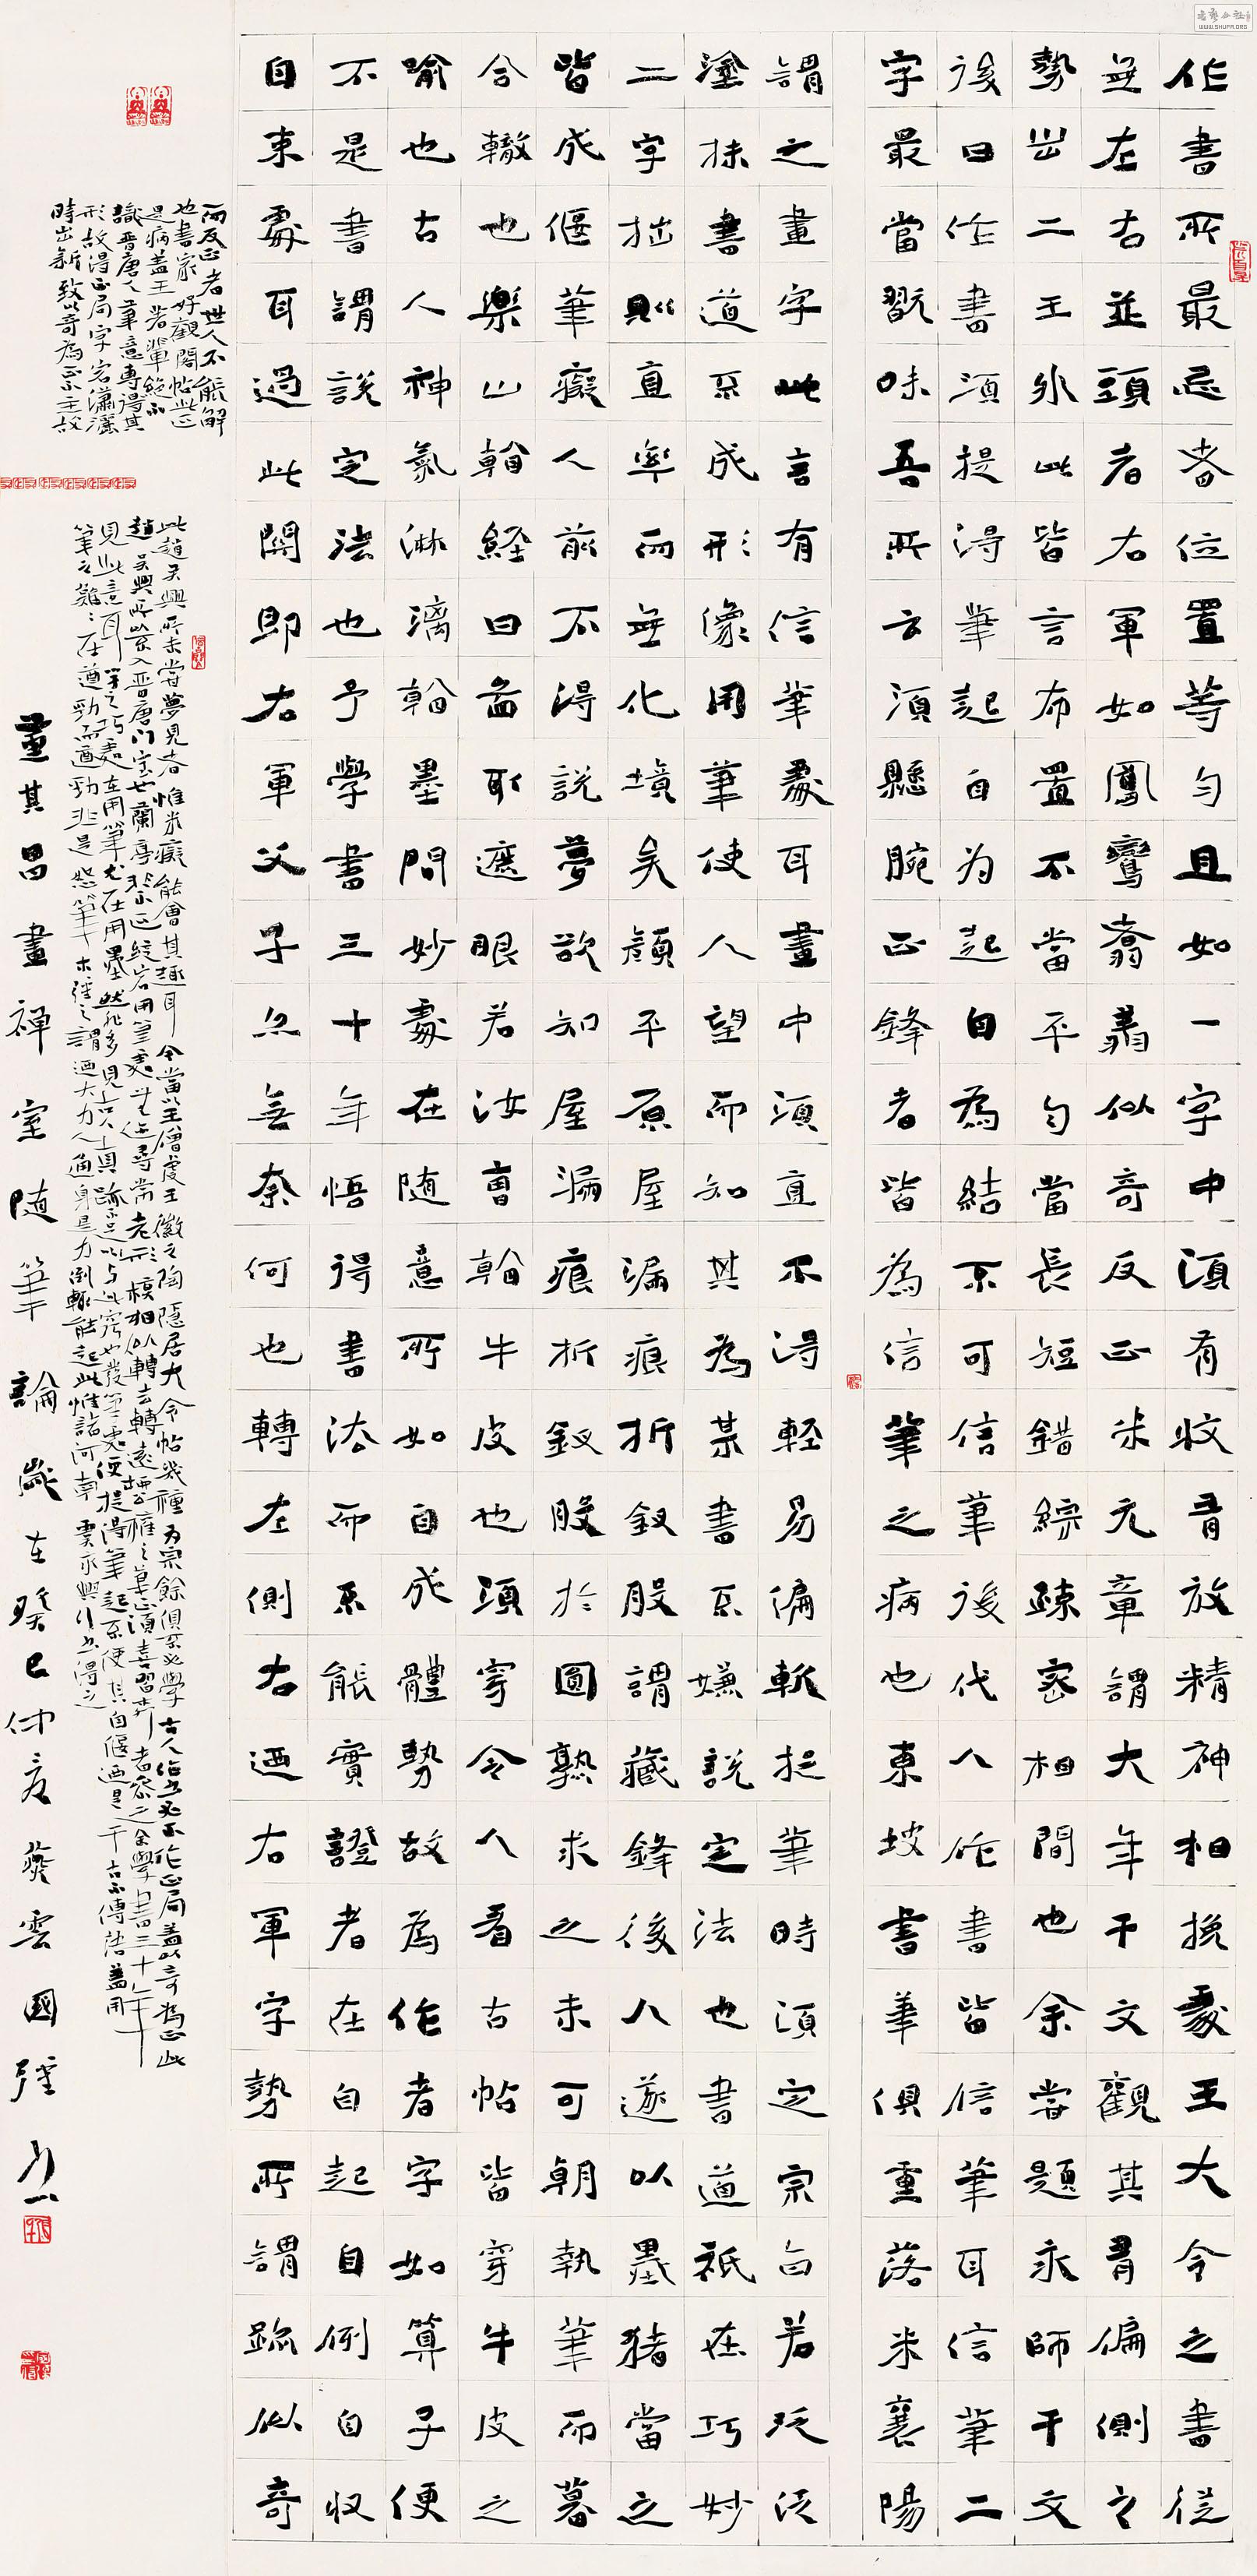 作書所最忌者位置等勻且如一字中須有收昔放精神相挽處王大令之書從
無左右並頭者右軍如鳳鸞翥翔似奇反正米元章謂大年千文觀其有偏側之
勢出二王外此皆言布置不當平勻當長短錯綜疎密相間也余嘗題永師千文
後曰作書須提得筆起自為起自為結不可信筆後代人作書皆信筆耳信筆二
字最當翫味吾所云須懸腕正鋒者皆為信筆之病也東坡書筆俱重落米襄陽
謂之畫字此言有信筆處耳畫中須直不得輕易偏軟捉筆時須定宗旨若泛泛
塗抹書道不成形像用筆使人望而知其為某書不嫌說定法也書道祇在巧妙
二字拙則直率而無化境矣顏平原屋漏痕折釵股謂藏鋒後人遂以墨豬當之
皆成偃筆癡人前不得說夢欲知屋漏痕折釵股於圓熟求之未可朝執筆而暮
合轍也樂山翰經曰啚取遮眼若汝曹翰牛皮也須穿今人看古帖皆穿牛皮之
喻也古人神氣淋漓翰墨間妙處在隨意所如自成體勢故為作者字如算子便
不是書謂說定法也予學書三十年悟得書法而不能實證者在自起自例自收
自束處耳過此關即右軍父子亦無奈何也轉左側右迺右軍字勢所謂跡似奇
而反正者世人不能解
也書家好觀閣帖此正
是病蓋王著輩絕不
識晉唐人筆意專得其
形故得正局字字宕瀟灑
時出新致以奇為正不主故
此趙吳興所未嘗夢見者惟米癡能會其趣耳今當以王僧虔王徽之陶隱居大令帖幾種為宗餘俱不必學古人作書必不作正局蓋以奇為正此
趙吳興所以不入晉唐門室也蘭亭非不正縱宕用筆處無迹尋常老形模相似轉去轉遠柳公權之筆正須善習者參之余學書三十年
見此意耳字之巧處在用筆尤在用墨然非多見古人真跡不足以與此竅也發筆處便提得筆起不使其自偃迺是千古不傳語蓋用
筆之難難在遒勁而遒勁非是怒筆木強之謂迺大力人通身是力倒輒能起此惟諸河南虞永興行書得之
董其昌畫禪室隨筆論歲在癸巳仲夏燕雲國強書
WWW.SHUFA.ORG